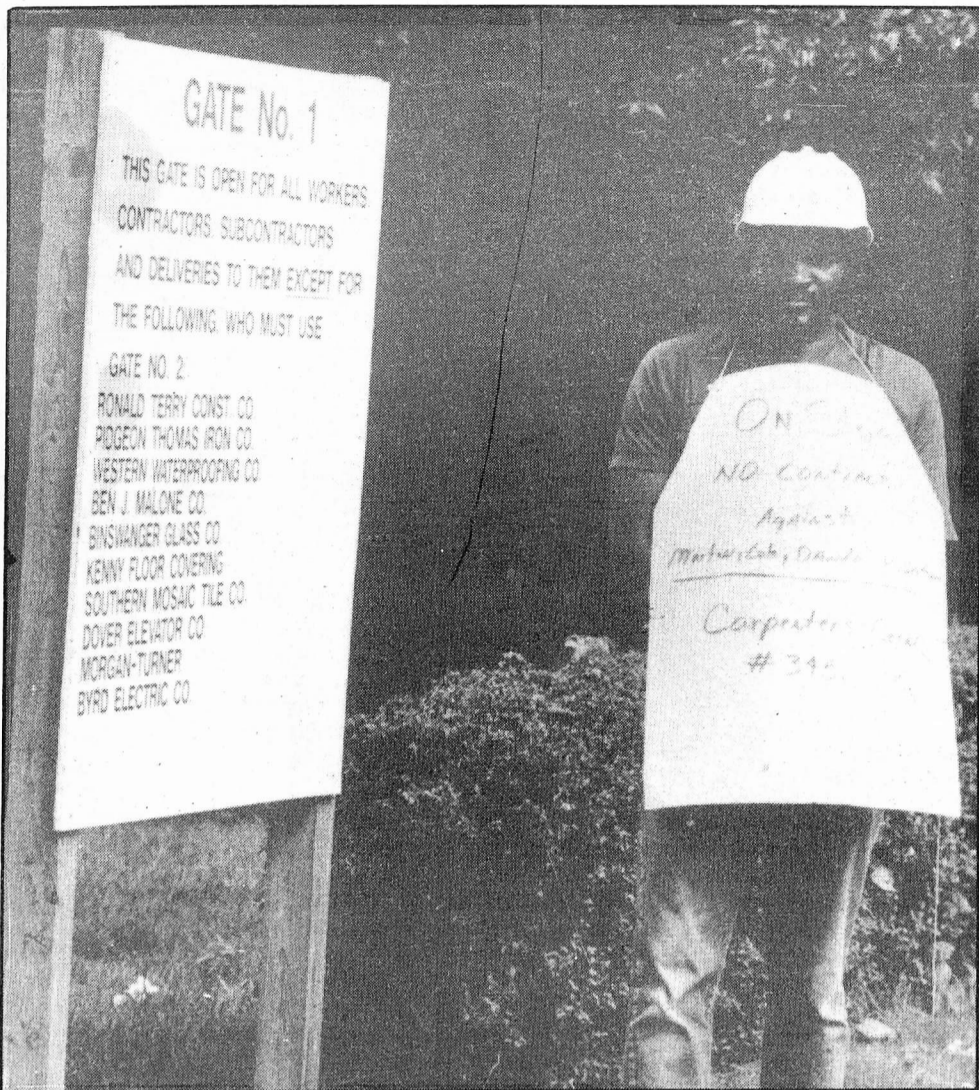 GATE No. 1
THIS GATE IS OPEN FOR ALL WORKERS,
CONTRACTORS, SUBCONTRACTORS
AND DELIVERIES TO THEM EXCEPT FOR
THE FOLLOWING, WHO MUST USE
GATE NO. 2:
RONALD TERRY CONST. CO.
PIDGEON THOMAS IRON CO.
WESTERN WATERPROOFING CO
BEN J. MALONE CO.
BINSWANGER GLASS CO
KENNY FLOOR COVERING
SOUTHERN MOSAIC TILE CO.
DOVER ELEVATOR CO
MORGAN-TURNER
BYRD ELECTRIC CO.
ON
NO Contract
Against
Carpenters
# 345